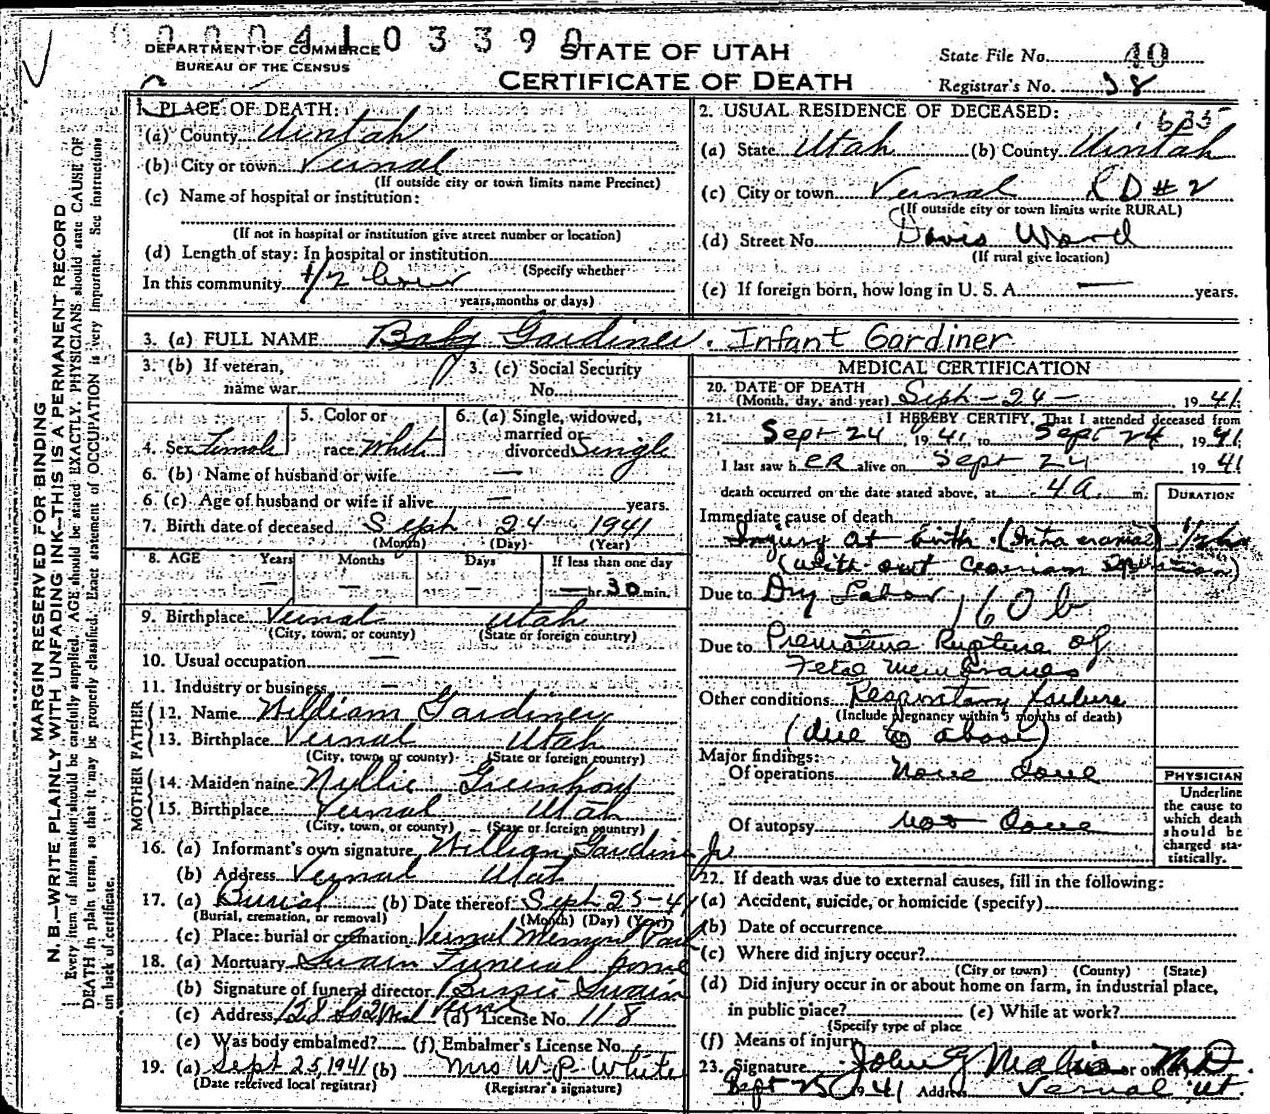 000041 03390
DEPARTMENT OF COMMERCE
BUREAU OF THE CENSUS
STATE OF UTAH
CERTIFICATE OF DEATH
State File No. 40
Registrar's No. 38
MARGIN RESERVED FOR BINDING
N. B.—WRITE PLAINLY WITH UNFADING INK—THIS IS A PERMANENT RECORD
Every item of information should be carefully supplied. AGE should be stated EXACTLY. PHYSICIANS should state CAUSE OF
DEATH in plain terms, so that it may be properly classified. Exact statement of OCCUPATION is very important. See instructions
on back of certificate.
1. PLACE OF DEATH:
(a) County Uintah
(b) City or town Vernal
(If outside city or town limits name Precinct)
(c) Name of hospital or institution:
(If not in hospital or institution give street number or location)
(d) Length of stay: In hospital or institution
(Specify whether
In this community 1/2 hour
years, months or days)
2. USUAL RESIDENCE OF DECEASED:
635
(a) State Utah (b) County Uintah
(c) City or town Vernal RD # 2
(If outside city or town limits write RURAL)
(d) Street No. Davis Ward
(If rural give location)
(e) If foreign born, how long in U. S. A. — years.
3. (a) FULL NAME Baby Gardiner. Infant Gardiner
3. (b) If veteran,
name war
3. (c) Social Security
No.
4. Sex Female
5. Color or
race White
6. (a) Single, widowed,
married or
divorced Single
6. (b) Name of husband or wife —
6. (c) Age of husband or wife if alive — years.
7. Birth date of deceased Sept 24 1941
(Month) (Day) (Year)
8. AGE Years Months Days If less than one day
— — — — hr. 30 min.
9. Birthplace Vernal Utah
(City, town, or county) (State or foreign country)
10. Usual occupation —
11. Industry or business —
FATHER
12. Name William Gardiner
13. Birthplace Vernal Utah
(City, town, or county) (State or foreign country)
MOTHER
14. Maiden name Nellie Greenhow
15. Birthplace Vernal Utah
(City, town, or county) (State or foreign country)
16. (a) Informant's own signature William Gardiner Jr
(b) Address Vernal Utah
17. (a) Burial (b) Date thereof Sept 25-41
(Burial, cremation, or removal) (Month) (Day) (Year)
(c) Place: burial or cremation Vernal Memory Park
18. (a) Mortuary Swain Funeral home
(b) Signature of funeral director Bessie Swain
(c) Address 128 So 2nd West (d) License No. 118
(e) Was body embalmed? (f) Embalmer's License No.
19. (a) Sept 25, 1941 (b) Mrs W. P. White
(Date received local registrar) (Registrar's signature)
MEDICAL CERTIFICATION
20. DATE OF DEATH
(Month, day, and year) Sept - 24 - 1941
21. I HEREBY CERTIFY, That I attended deceased from
Sept 24, 1941, to Sept 24 1941
I last saw her alive on Sept 24 1941
death occurred on the date stated above, at 4 a. m.
DURATION
Immediate cause of death
Injury at birth (Intra cranial) 1/2 hr
(with-out Cesarian Operation)
Due to Dry Labor 160b
Due to Premature Rupture of
Fetal Membranes
Other conditions Respiratory failure
(Include pregnancy within 3 months of death)
(due to above)
Major findings:
Of operations None done
Of autopsy not done
PHYSICIAN
Underline
the cause to
which death
should be
charged sta-
tistically.
22. If death was due to external causes, fill in the following:
(a) Accident, suicide, or homicide (specify)
(b) Date of occurrence
(c) Where did injury occur?
(City or town) (County) (State)
(d) Did injury occur in or about home on farm, in industrial place,
in public place? (e) While at work?
(Specify type of place
(f) Means of injury
23. Signature John G. or other M.D.
Sept 25 1941 Address Vernal Ut.